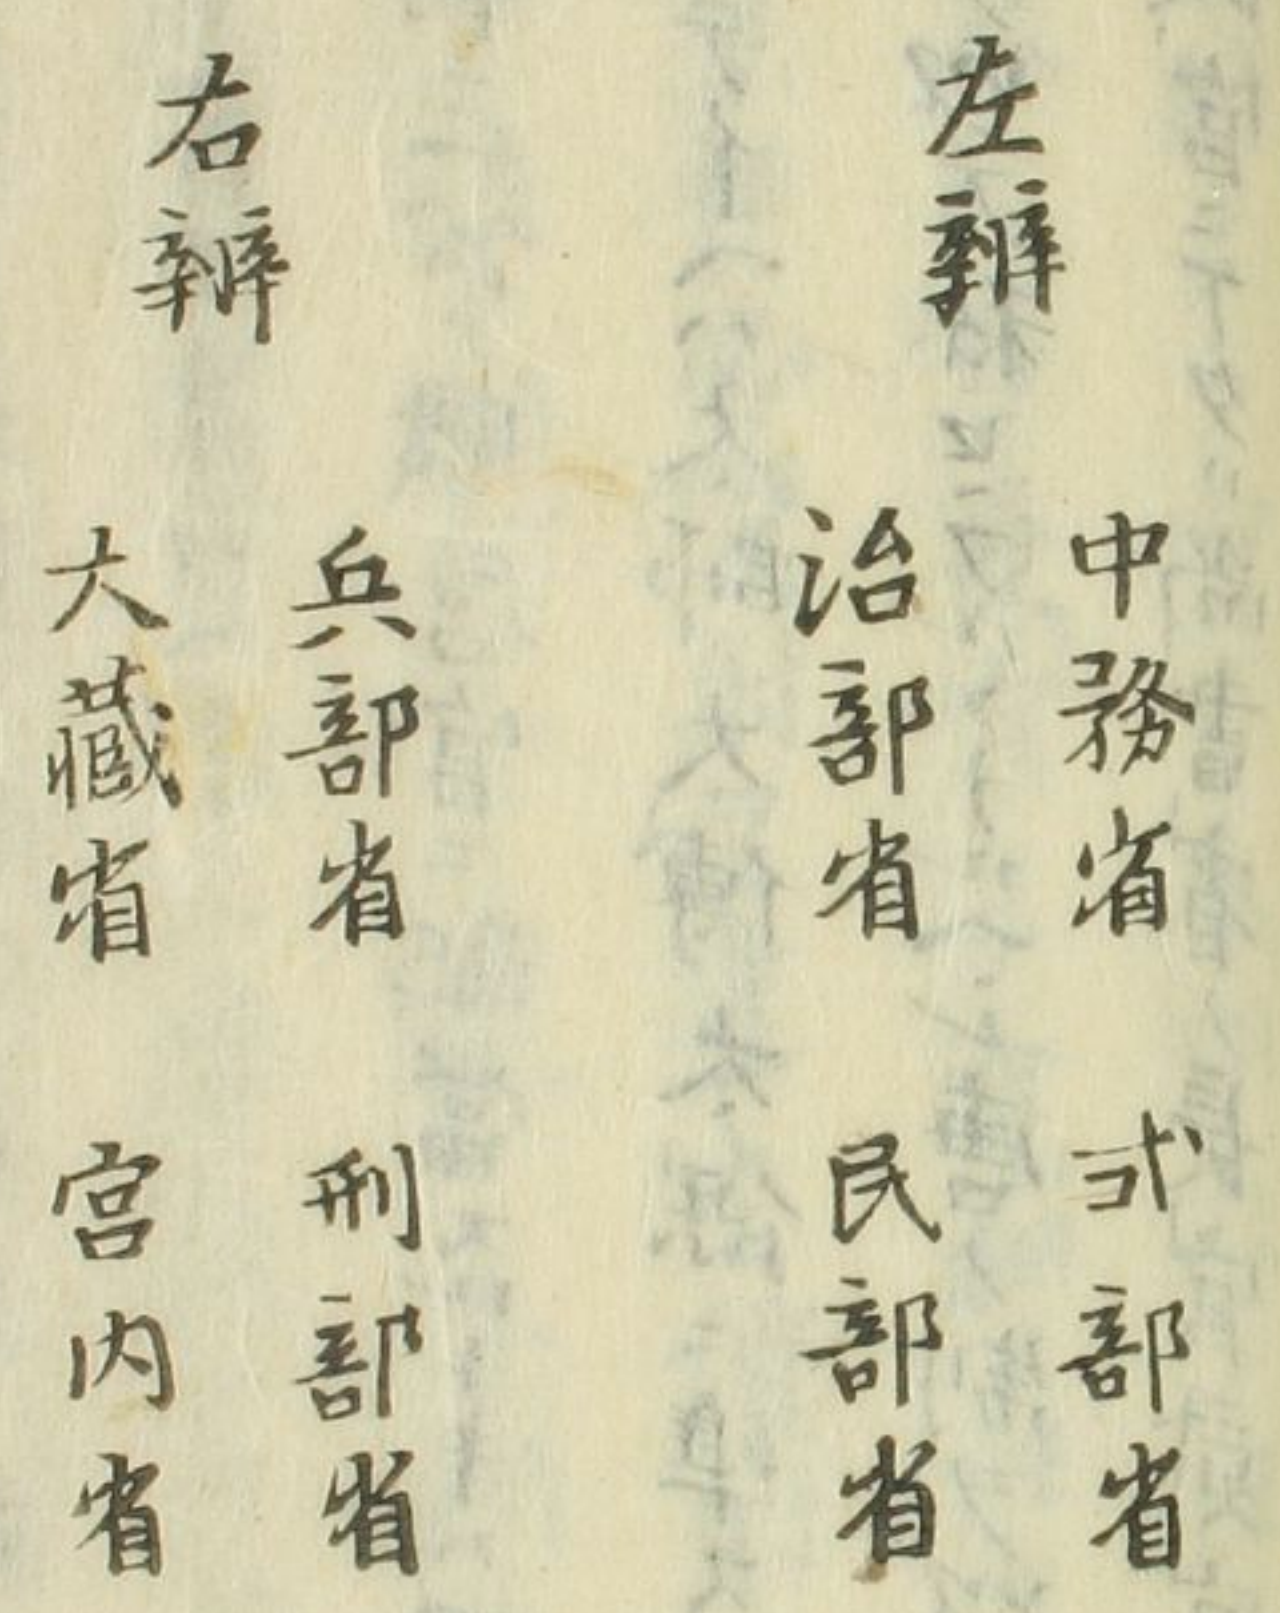 左辨
中務省 式部省
治部省 民部省
右辨
兵部省 刑部省
大藏省 宮内省